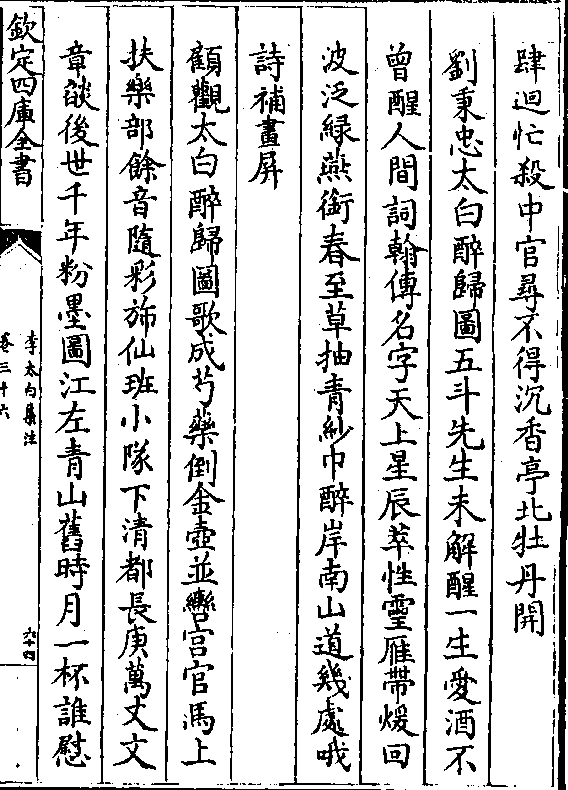 肆迴忙殺中官尋不得沉香亭北牡丹開
劉秉忠太白醉歸圖五斗先生未解醒一生愛酒不
曾醒人間詞翰傳名字天上星辰萃性靈雁帶煖回
波泛綠燕銜春至草抽青紗巾醉岸南山道幾處哦
詩補畫屏
顧觀太白醉歸圖歌成芍藥倒金壺並轡宫官馬上
扶樂部餘音隨彩斾仙班小隊下清都長庚萬丈文
章燄後世千年粉墨圖江左青山舊時月一杯誰慰
欽定四庫全書
李太白集注
卷三十六
六十四